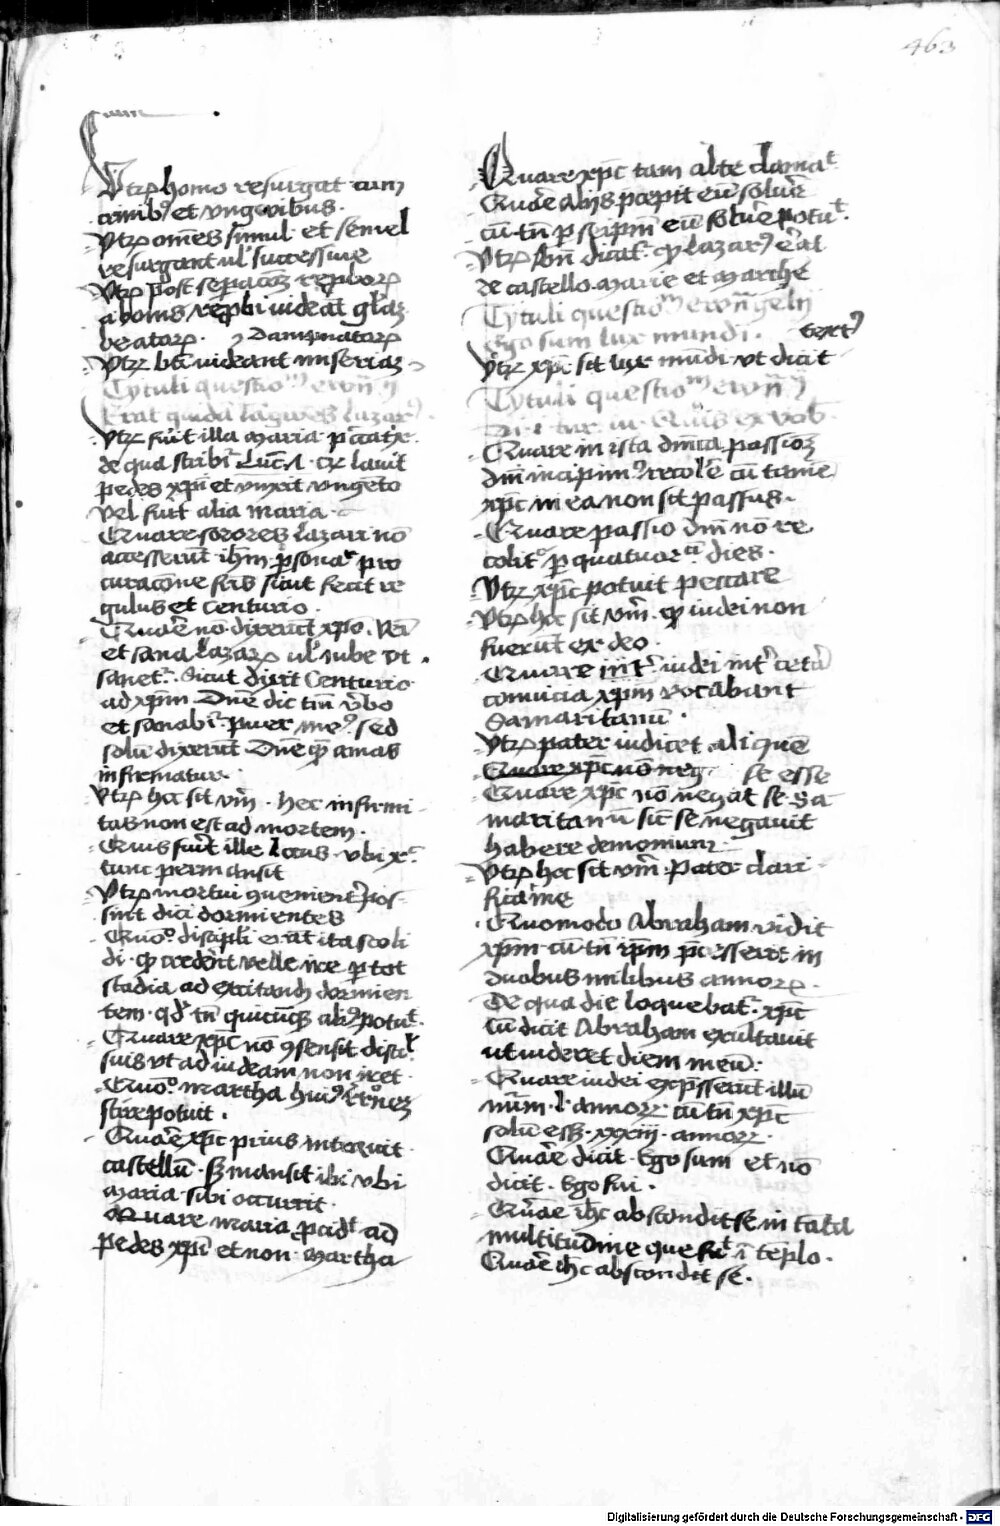 463
Utrum homo resurgat cum
crinibꝰ et ungwibus.
Utrum om̄es simul et semel
resurgant ul' successiue
Utrum post sep̄ac̄oēs rep̄borum
a bonis rep̄bi uideāt gl'iaz
beatorum . Dampnatorum
Utrum bt̄i uideant miserias
Tytuli questionū ewāgelij
Erat quidā languēs lazarꝰ
Utrum fuit illa maria pēcat̄x
de qua scribit̄ Luc̄
pedes xp̄i et vnxit vngēto
vel fuit alia maria
Quare sorores Lazari nō
accesserūt ih̄m p̄sonalr̄ pro
curac̄one fr̄is sicut fecit re
gulus et Centurio .
Quare nō dixerūt xp̄o . Veni
et sana Lazarum ul' iube vt
sanet̄ . Sicut dixit Centurio
ad xp̄m Dn̄e dic tm̄ v̄bo
et sanabit̄ puer meꝰ sed
solū dixerūt Dn̄e quē amas
infirmatur .
Utrum hec sit v̄a . hec infirmi
tas non est ad mortem .
Quis fuit ille locus . vbi xp̄c
tunc permansit
Utrum mortui conuenient̄ pos
sint dici dormientes
Quōo discipl'i erāt ita stoli
di . qd crederēt velle ire per tot
stadia ad excitandū dormien
tem . qd' tn̄ quicunqꝫ aliꝰ potuit .
Quare xp̄c nō consensit discil'
suis vt ad iudeam non iret
Quōo martha huiꝰ
scire potuit .
Quare xp̄c prius intrauit
castellū . sꝫ mansit ibi vbi
maria sibi occurrit
Quare maria p̄cidit ad
pedes xp̄i et non martha
Quare xp̄c tam alte clamat
Quare alijs p̄cepit eū soluere
cū tn̄ per seip̄m eū soluere potuit .
Utrum bn̄ dicat̄ . qd Lazarꝰ erat
de castello marie et marthe
Tytuli questionū ewāgelij
Ego sum lux mundi . textꝰ
Utrum xp̄c sit lux mūdi vt dicit
Tytuli questionū ewāgelij
Quis ex vob̄
Quare in ista dn̄ica passioēz
dn̄i incipimꝰ recol'e cū tamē
xp̄c in ea non sit passus .
Quare passio dn̄i nō re
colit̄ per quatuor dies .
Utrum xp̄c potuit peccare
Utrum hec sit v̄a . qd iudei non
fuerūt ex deo .
Quare iudei int̄ cetera
conuicia xp̄m vocabant
Samaritanū .
Utrum pater iudicet aliquē
Quare xp̄c nō neg se esse
Quare xp̄c nō negat se Sa
maritanū sic̄ se negauit
habere demonium
Utrum hec sit v̄a . Pater clari
fica me
Quomodo Abraham vidit
xp̄m . cū tn̄ ip̄m p̄cesserit in
duobus milibus annorum .
De qua die loquebat̄ . xp̄c
cū dicit Abraham exultauit
ut uideret diem meū .
Quare iudei exp̄sserūt illū
nūm . l . annorum cū tn̄ xp̄c
solū esset . xxxiij . annorum .
Quare dicit . Ego sum et nō
dicit . Ego fui .
Quare ih̄c abscondit se in tata
multitudine que fuit ī tēplo .
Quare ih̄c abscondit se .
Digitalisierung gefördert durch die Deutsche Forschungsgemeinschaft - DFG